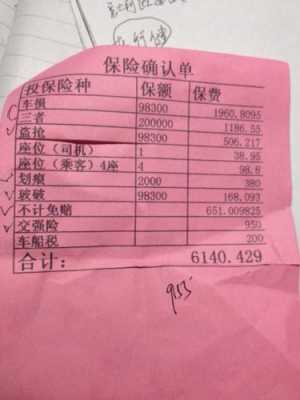 保险确认单
投保险种 保额 保费
车损 98300 1960.8095
三者 200000 1186.55
盗抢 98300 506.217
座位（司机） 1 38.95
座位（乘客）4座 4 98.8
划痕 2000 380
玻破 98300 168.093
不计免赔 651.009825
交强险 950
车船税 200
合计： 6140.429
955